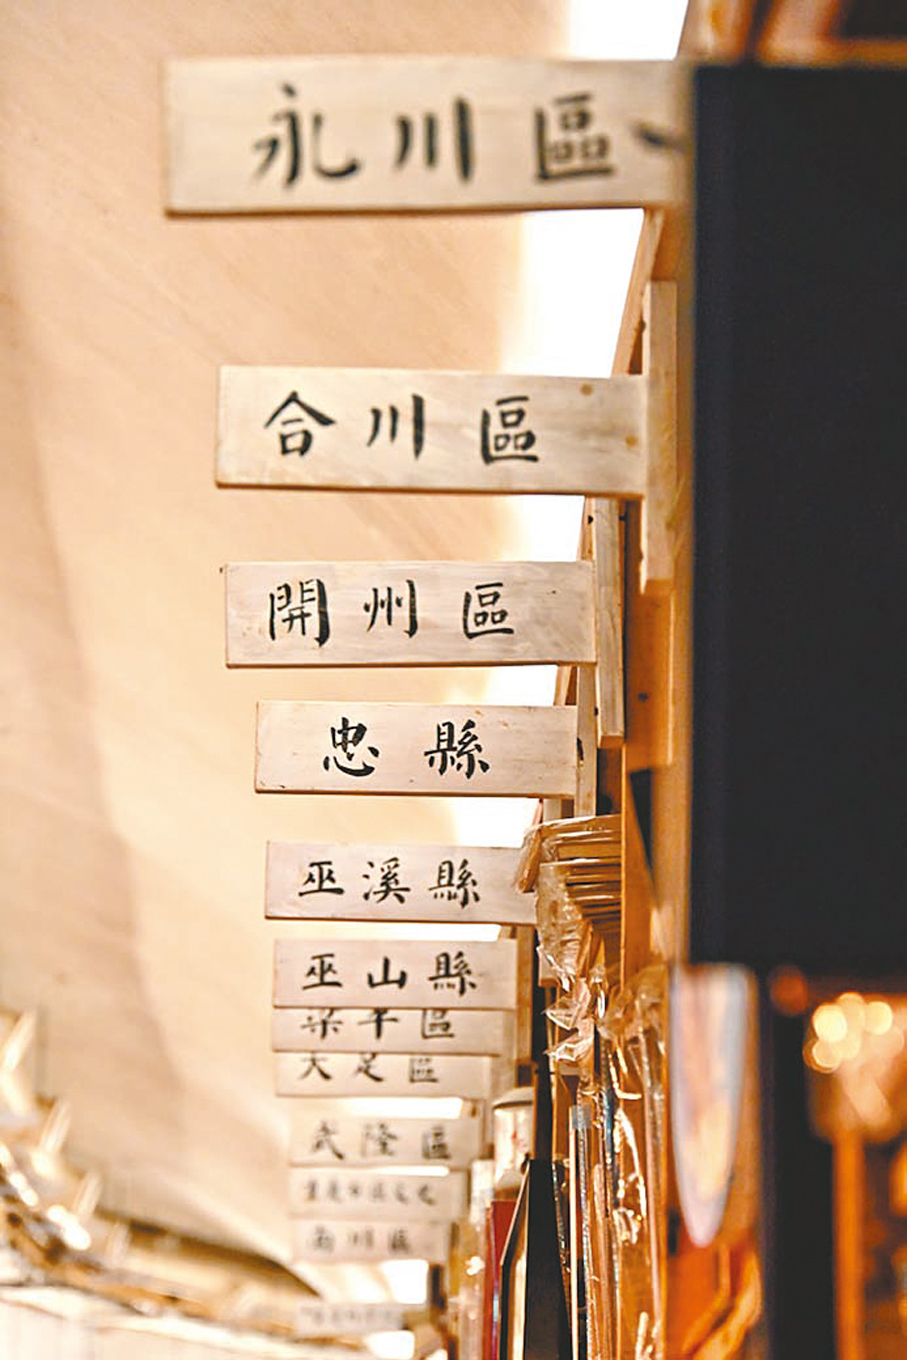 永川區
合川區
開州區
忠縣
巫溪縣
巫山縣
梁平區
大足區
武隆區
南川區